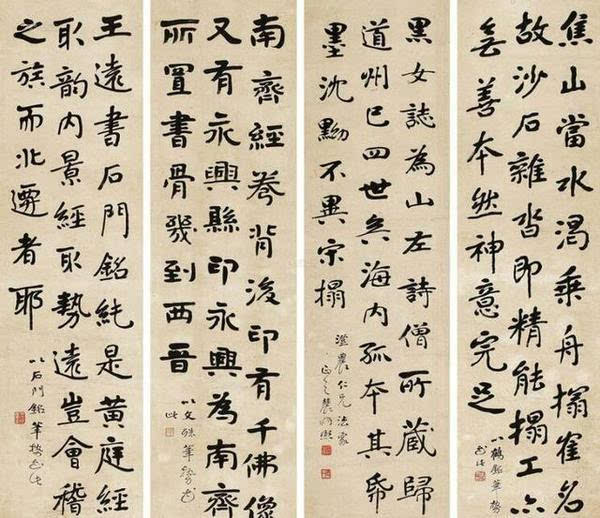 焦山當水渴乘舟搨隺名
故沙石雜沓即精能搨工亦
無善本然神意完足
以鶴銘筆勢
書此
黑女誌為山左詩僧所藏歸
道州已四世矣海内孤本其帋
墨沈黝不異宋搨
農仁兄法家
正之農髯熙
南齊經卷背後印有千佛像
又有永興縣印永興為南齊
所置書骨幾到西晉
以文殊筆勢書
此
王遠書石門銘純是黃庭經
取韵内景經取勢遠豈會稽
之族而北遷者耶
以石門銘筆勢書此